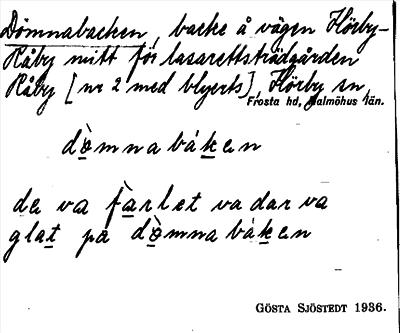 Dömnabacken, backe å vägen Hörby-
Råby mitt för lasarettsträdgården
Råby [nr 2 med blyerts], Hörby sn,
Frosta hd, Malmöhus län.
dòmnabákan
de va farlet va dar va
glat på dòmnabákan
GÖSTA SJÖSTEDT 1936.